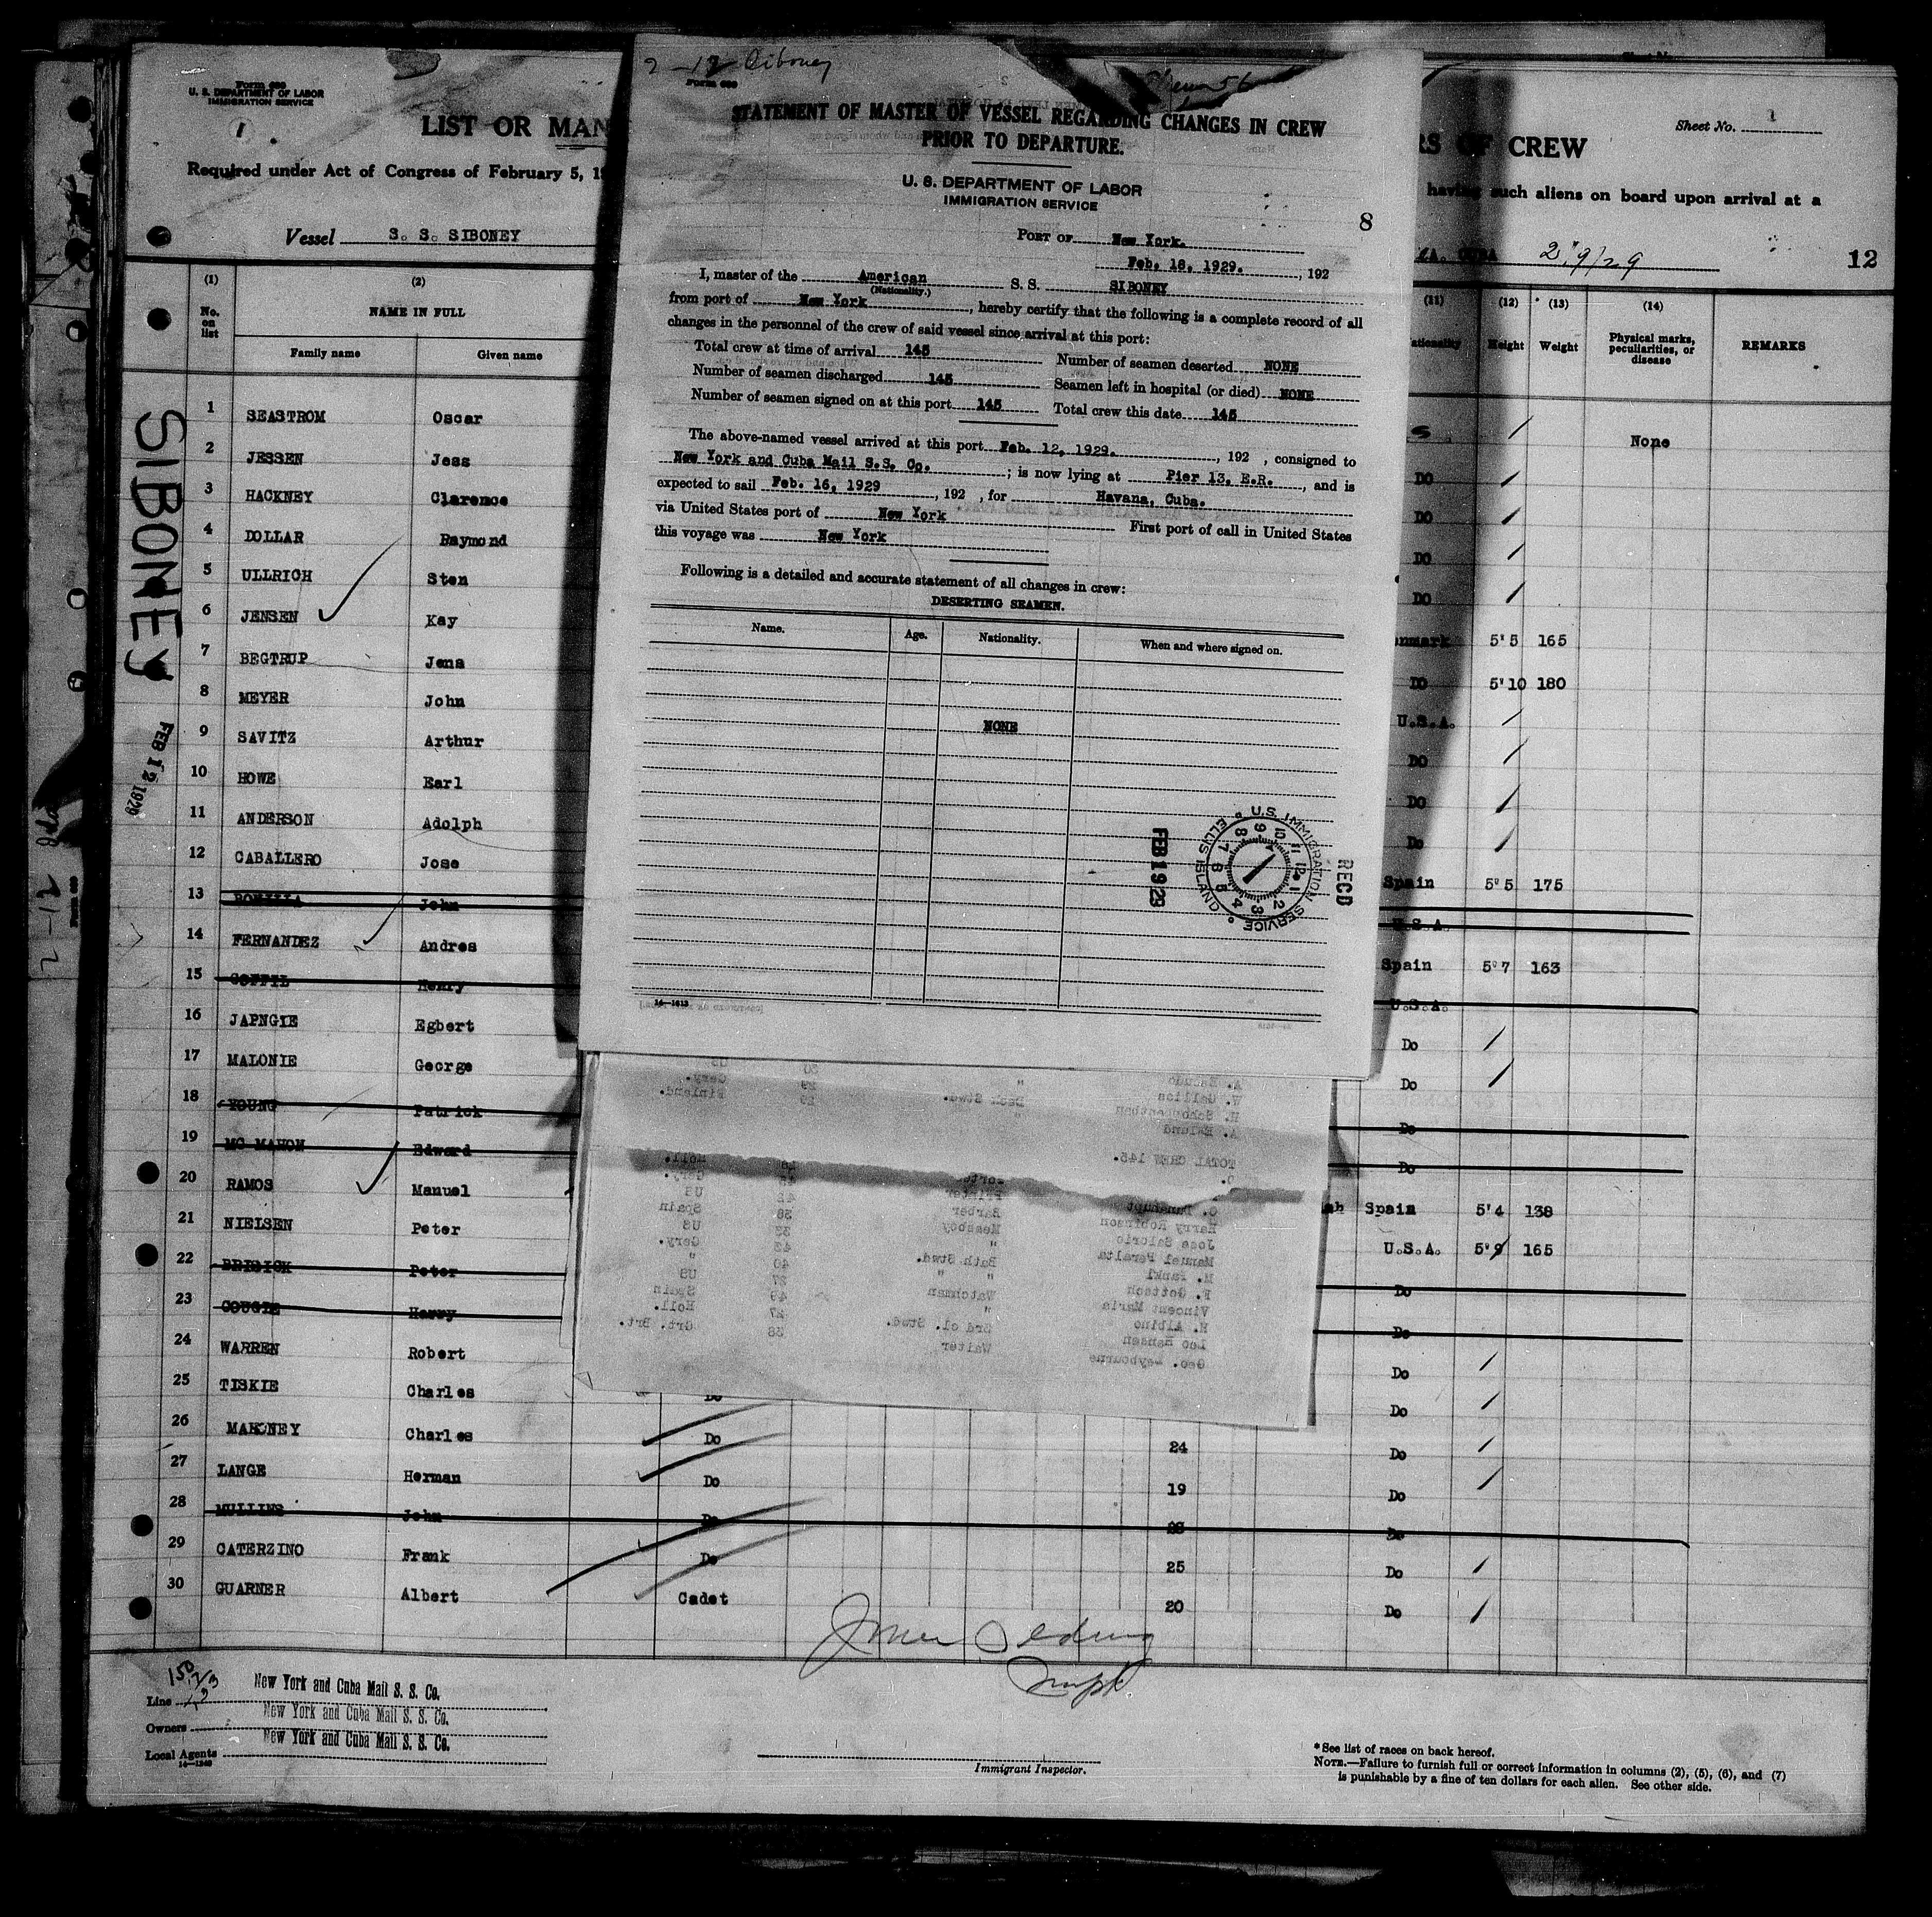 Form 689
U. S. DEPARTMENT OF LABOR
IMMIGRATION SERVICE
1
LIST OR MAN
Required under Act of Congress of February 5, 19
Vessel S. S. SIBONEY
(1) (2)
No. on list
NAME IN FULL
Family name Given name
SIBONEY
FEB 12 1929
1 SEASTROM Oscar
2 JESSEN Jess
3 HACKNEY Clarence
4 DOLLAR Raymond
5 ULLRICH Sten
6 JENSEN Kay
7 BEGTRUP Jens
8 MEYER John
9 SAVITZ Arthur
10 HOWE Earl
11 ANDERSON Adolph
12 CABALLERO Jose
13 John
14 FERNANDEZ Andres
15 COFFIL Henry
16 JAPNGIE Egbert
17 MALONIE George
18 YOUNG Patrick
19 MC MAHON Edward
20 RAMOS Manuel
21 NIELSEN Peter
22 Peter
23 COUGIE Harry
24 WARREN Robert
25 TISKIE Charles Do
26 MAHONEY Charles Do 24
27 LANGE Herman Do 19
28 MULLINS John Do 28
29 CATERZINO Frank Do 25
30 GUARNER Albert Cadet 20
Line New York and Cuba Mail S. S. Co.
Owners New York and Cuba Mail S. S. Co.
Local Agents New York and Cuba Mail S. S. Co.
Immigrant Inspector.
2-12 Siboney
STATEMENT OF MASTER OF VESSEL REGARDING CHANGES IN CREW
PRIOR TO DEPARTURE.
U. S. DEPARTMENT OF LABOR
IMMIGRATION SERVICE
8
PORT OF New York.
Feb. 18, 1929. , 192
I, master of the American S. S. SIBONEY
(Nationality.)
from port of New York , hereby certify that the following is a complete record of all
changes in the personnel of the crew of said vessel since arrival at this port:
Total crew at time of arrival 145 Number of seamen deserted NONE
Number of seamen discharged 145 Seamen left in hospital (or died) NONE
Number of seamen signed on at this port 145 Total crew this date 145
The above-named vessel arrived at this port Feb. 12, 1929. , 192 , consigned to
New York and Cuba Mail S.S. Co. ; is now lying at Pier 13, E.R. , and is
expected to sail Feb. 16, 1929 , 192 , for Havana, Cuba.
via United States port of New York First port of call in United States
this voyage was New York
Following is a detailed and accurate statement of all changes in crew:
DESERTING SEAMEN.
Name. Age. Nationality. When and where signed on.
NONE
FEB 19 29
U.S. IMMIGRATION SERVICE
ELLIS ISLAND
RECD
TOTAL CREW 145.
Harry Robinson Barber 38 US
Jose Salorio Messboy 33 Spain
Manuel Peralta
Vincent Maria Watchman
H. Albino
Leo Hansen 3rd cl. Stwd. 27 Holl.
Geo. Leybourne Waiter 38 Grt. Brt.
RS OF CREW
Sheet No. 1
having such aliens on board upon arrival at a
CUBA 2/9/29
12
(11) (12) (13) (14)
Height Weight Physical marks, peculiarities, or disease REMARKS
None
DO
DO
DO
DO
5'5 165
DO 5'10 180
U.S.A.
DO
DO
Do
Spain 5'5 175
U.S.A.
Spain 5'7 163
U.S.A.
Do
Do
Do
Do
Spain 5'4 138
U.S.A. 5'9 165
Do
Do
Do
Do
Do
Do
Do
Do
Do
*See list of races on back hereof.
NOTE.—Failure to furnish full or correct information in columns (2), (5), (6), and (7)
is punishable by a fine of ten dollars for each alien. See other side.